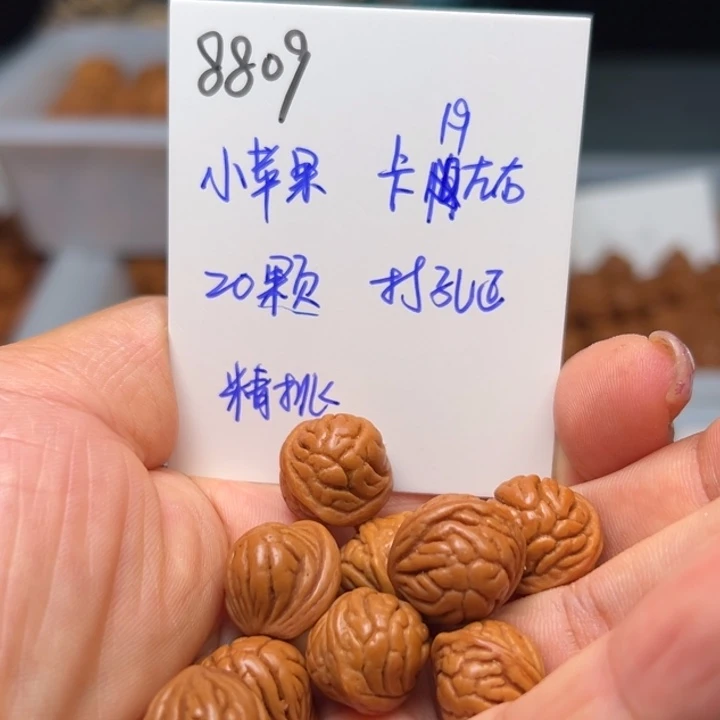 8809
小苹果 卡19左右
20颗 打孔正
精挑